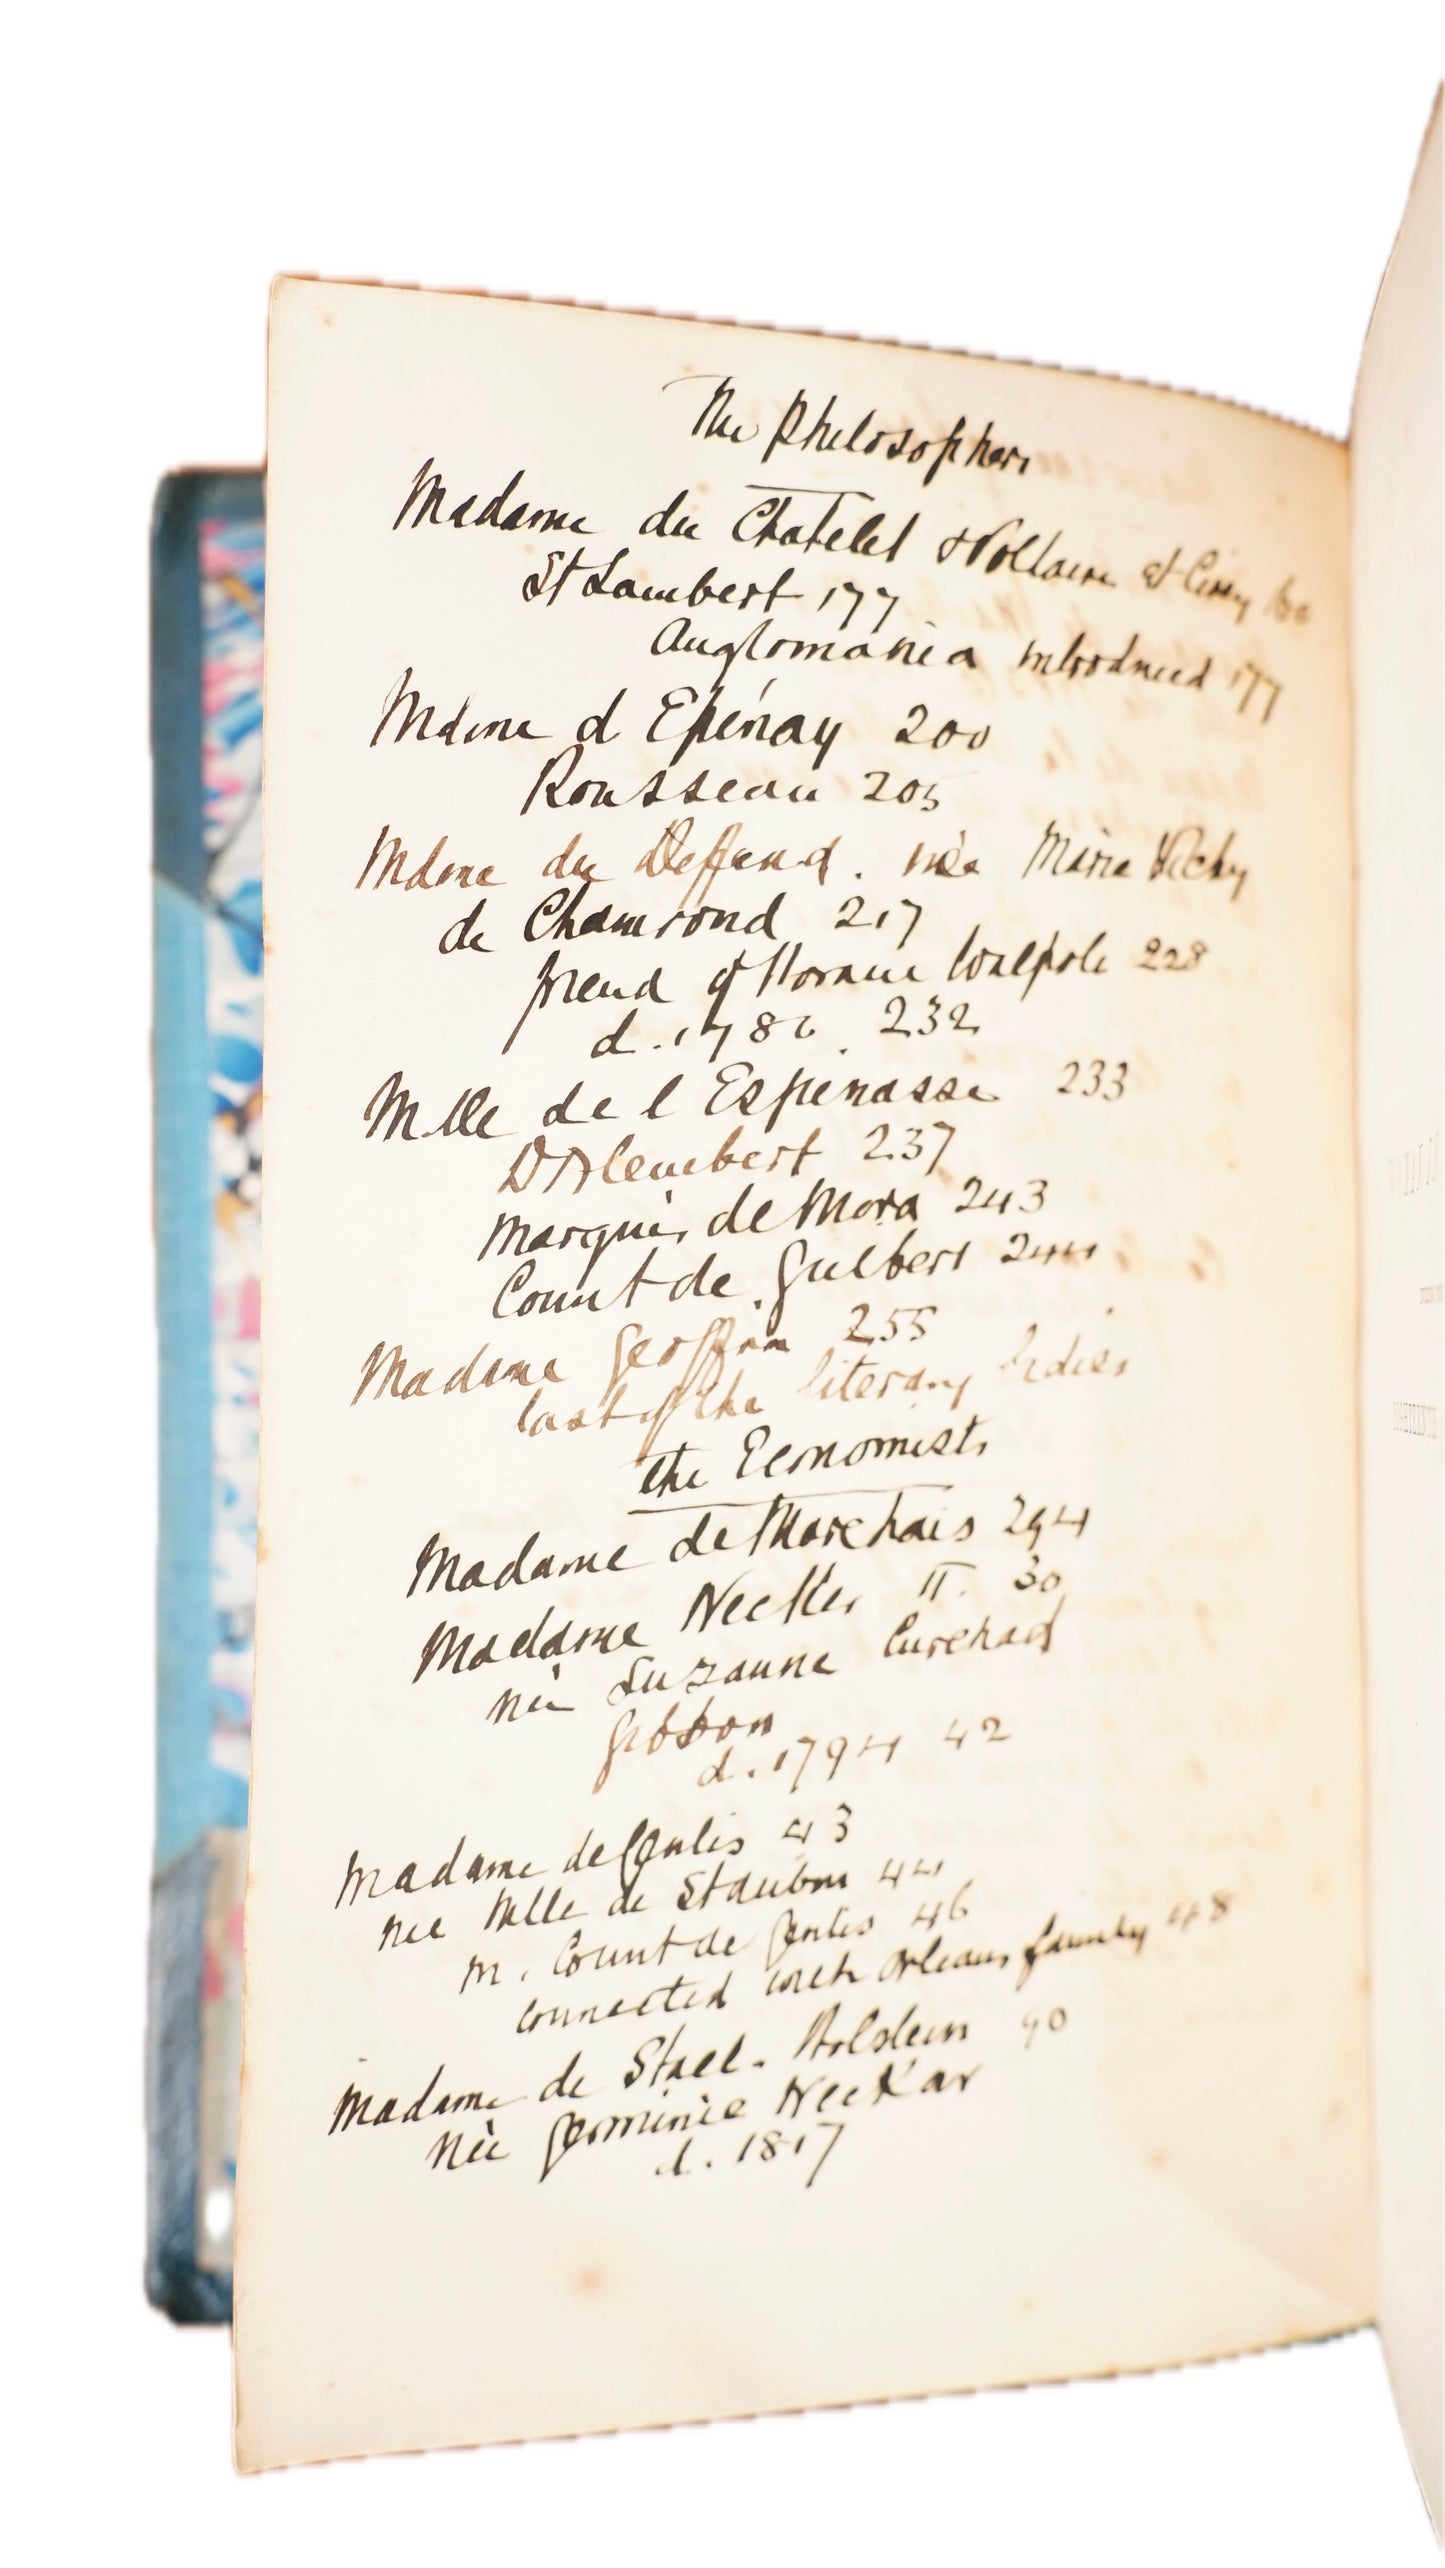 The Philosophers
Madame du Chatelet & Voltaire at Cirey
St Lambert 177
Anglomania introduced 177
Mdme d Epinay 200
Rousseau 205
Mdme du Deffand. née Marie Vichy
de Chamrond 217
friend of Horace Walpole 228
d. 1780. 232
Mlle de l Espinasse 233
D'Alembert 237
Marquis de Mora 243
Count de Guibert 244
Madame Geoffrin 255
last of the literary ladies
the Economists
Madame de Marchais 294
Madame Necker II. 30
née Suzanne Curchod
Gibbon
d. 1794 42
Madame de Genlis 43
née Mlle de St Aubin 44
m. Count de Genlis 46
connected with Orleans family 48
Madame de Stael. Holstein 90
née Germinie Neckar
d. 1817